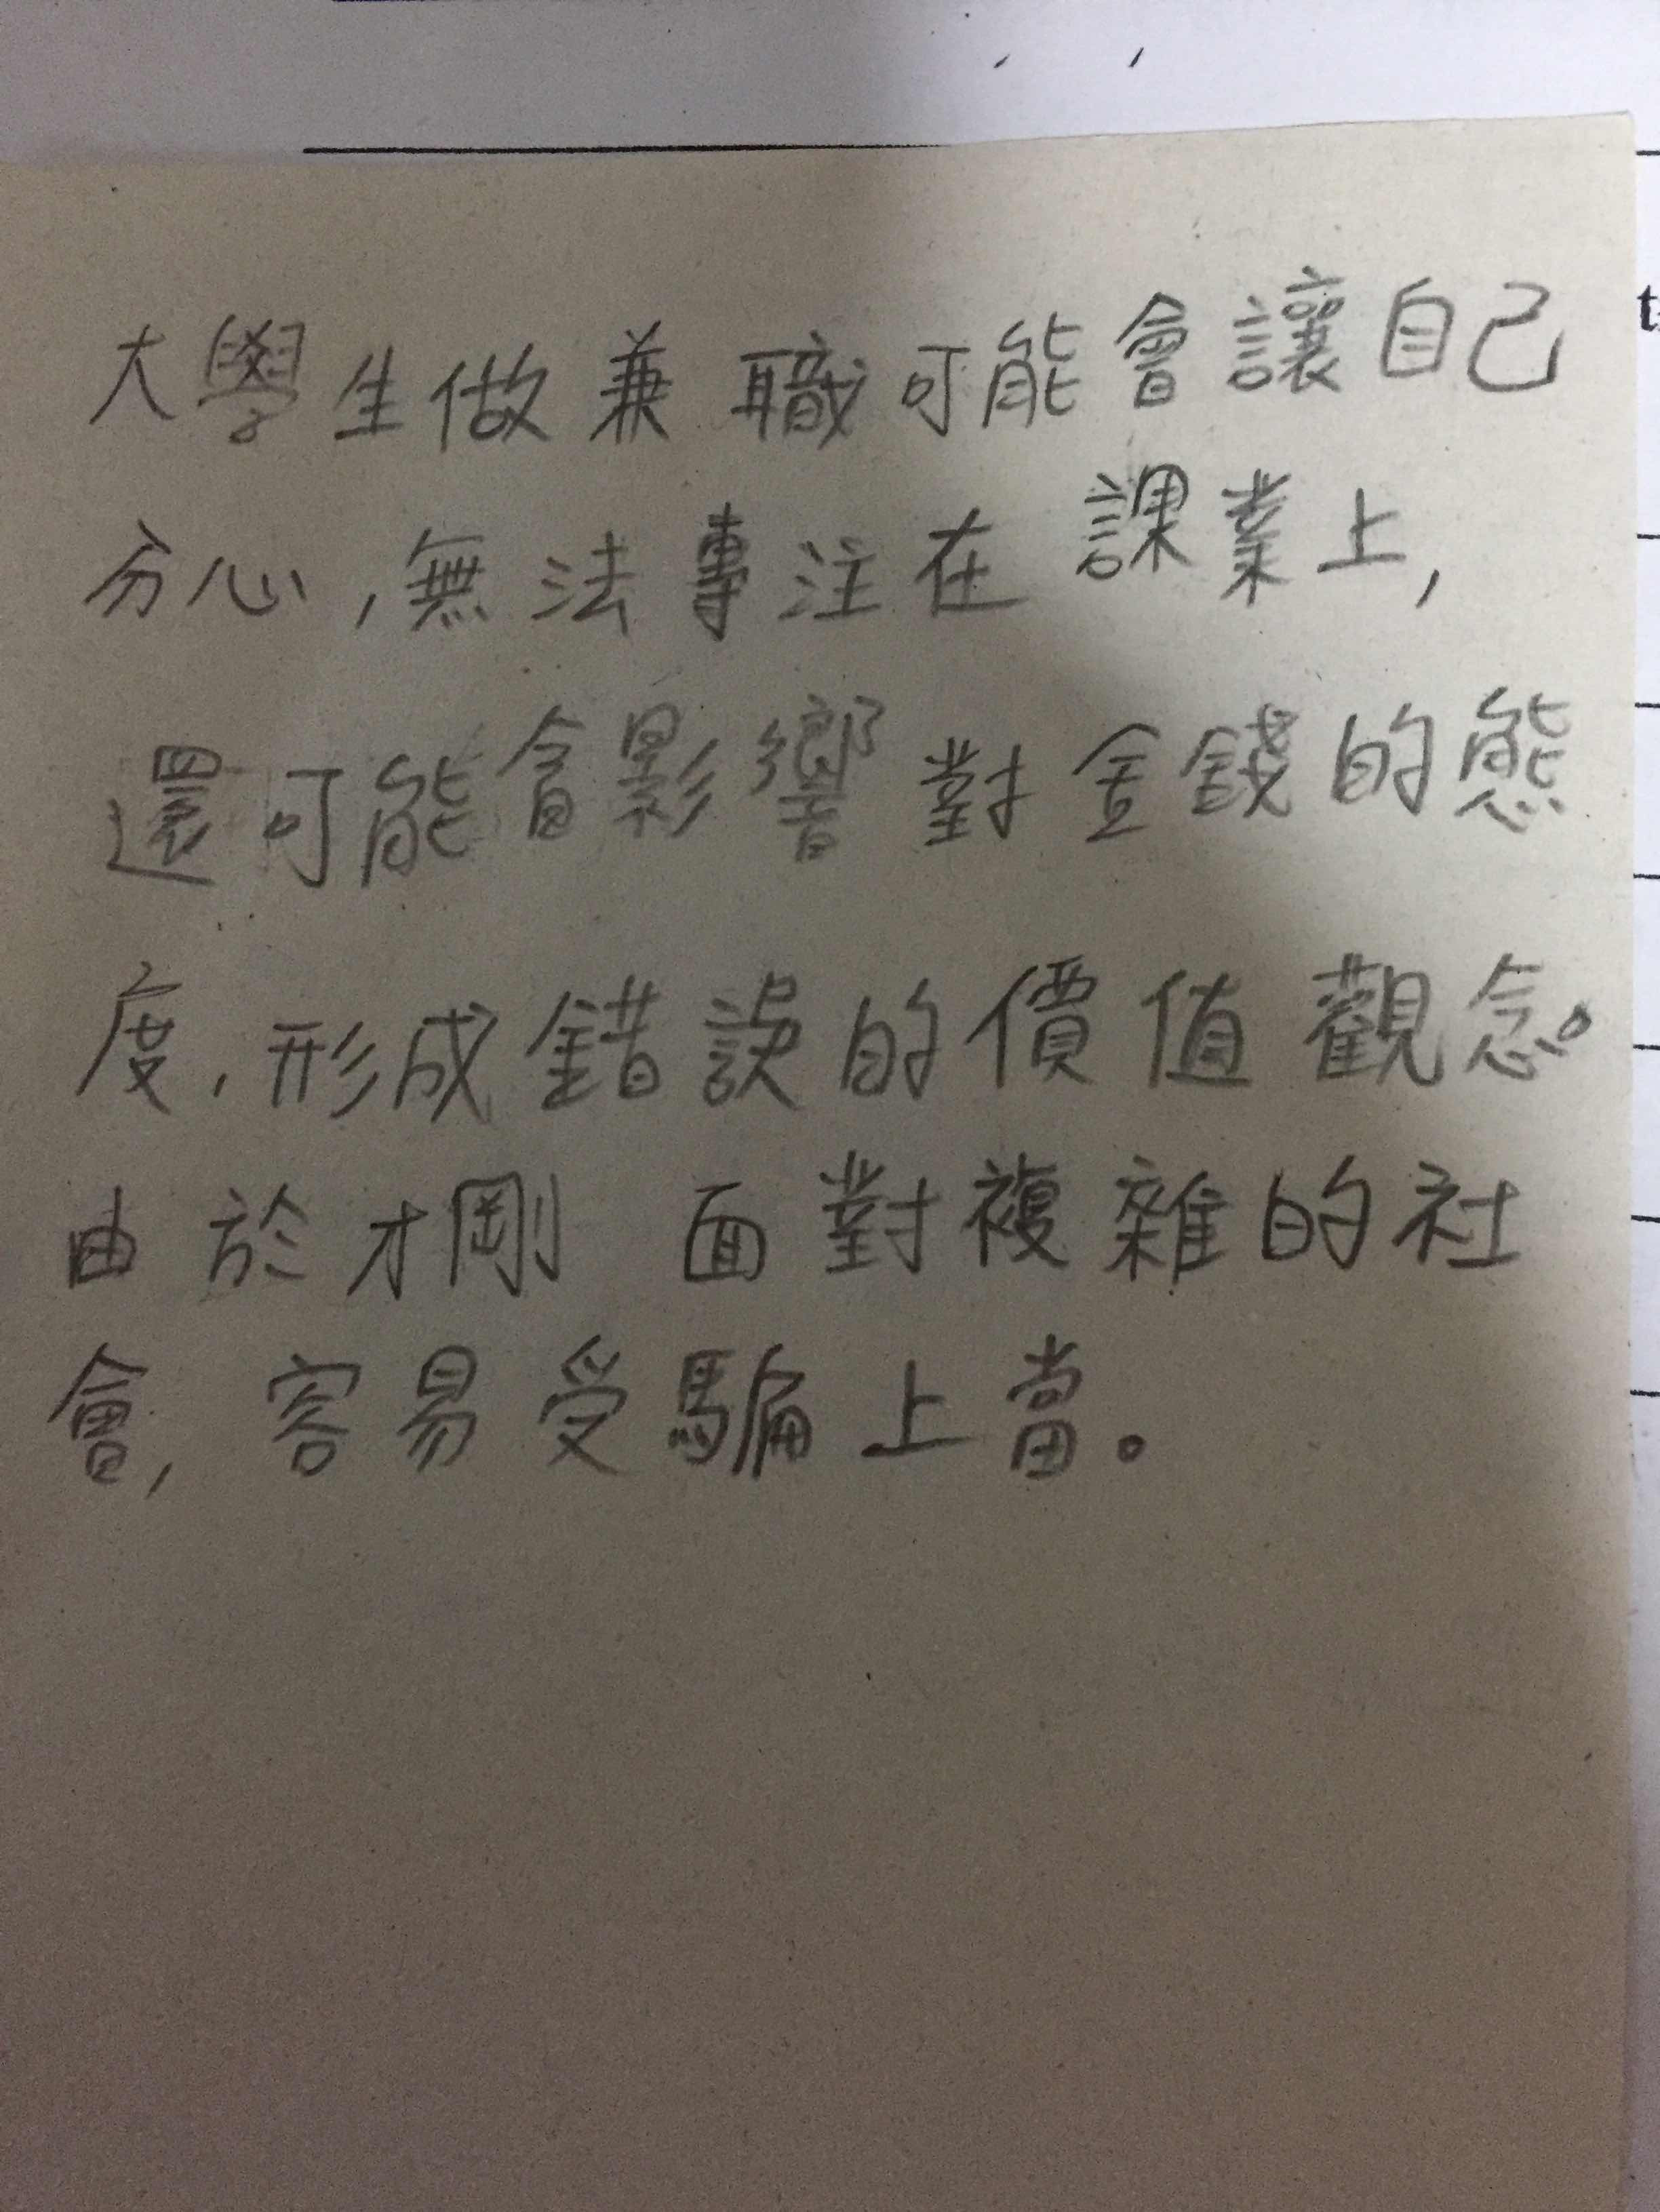 大學生做兼職可能會讓自己
分心,無法專注在課業上,
還可能會影響對金錢的態
度,形成錯誤的價值觀念。
由於才剛 面對複雜的社
會,容易受騙上當。